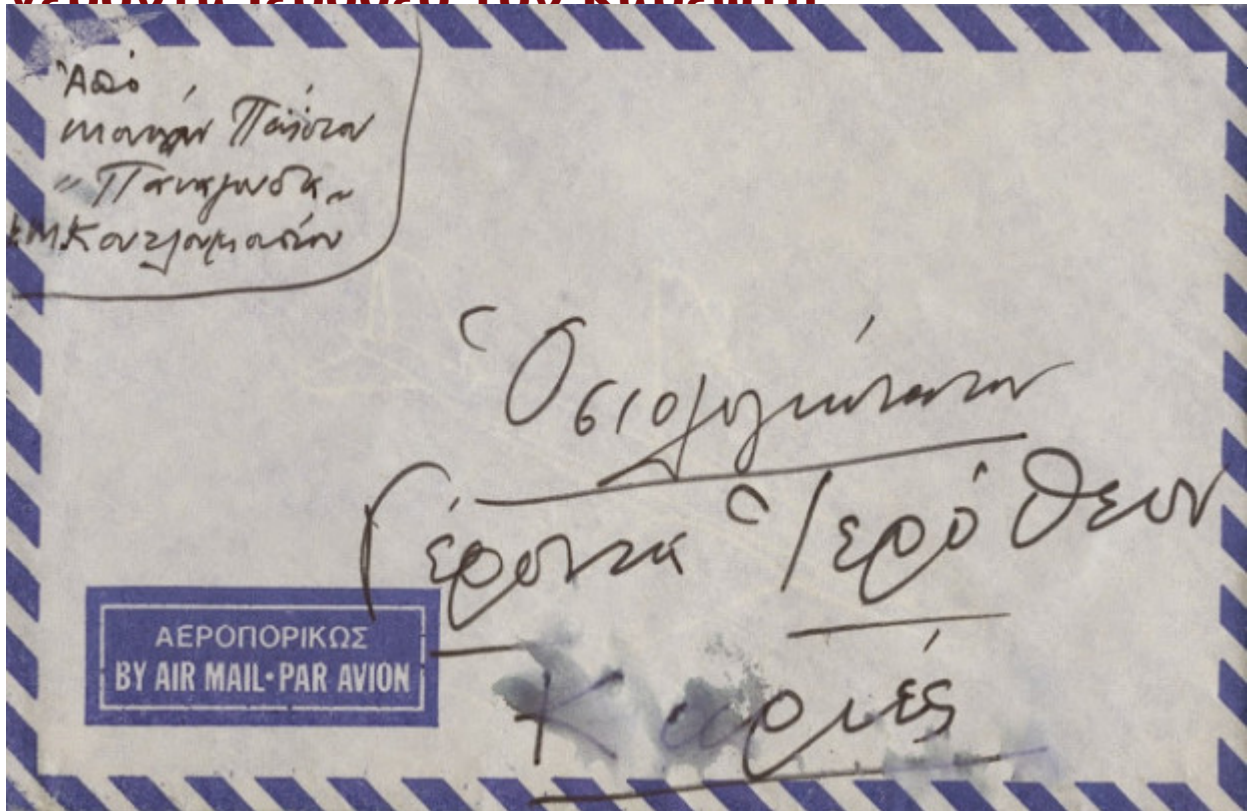 Ἀπὸ
μοναχὸν Παΐσιον
"Παναγούδα"
Ι.Μ. Κουτλουμουσίου
Ὁσιολογιώτατον
Γέροντα Ἱερόθεον
ΑΕΡΟΠΟΡΙΚΩΣ
BY AIR MAIL•PAR AVION
Καρυές